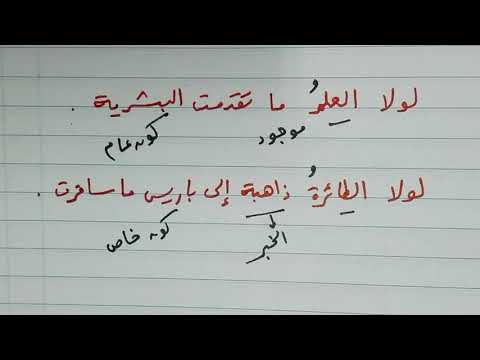 لولا العِلمُ ما تقدمت البشرية .
موجود كون عام
لولا الطائرةُ ذاهبة إلى باريس ما سافرت .
الخبر كون خاص